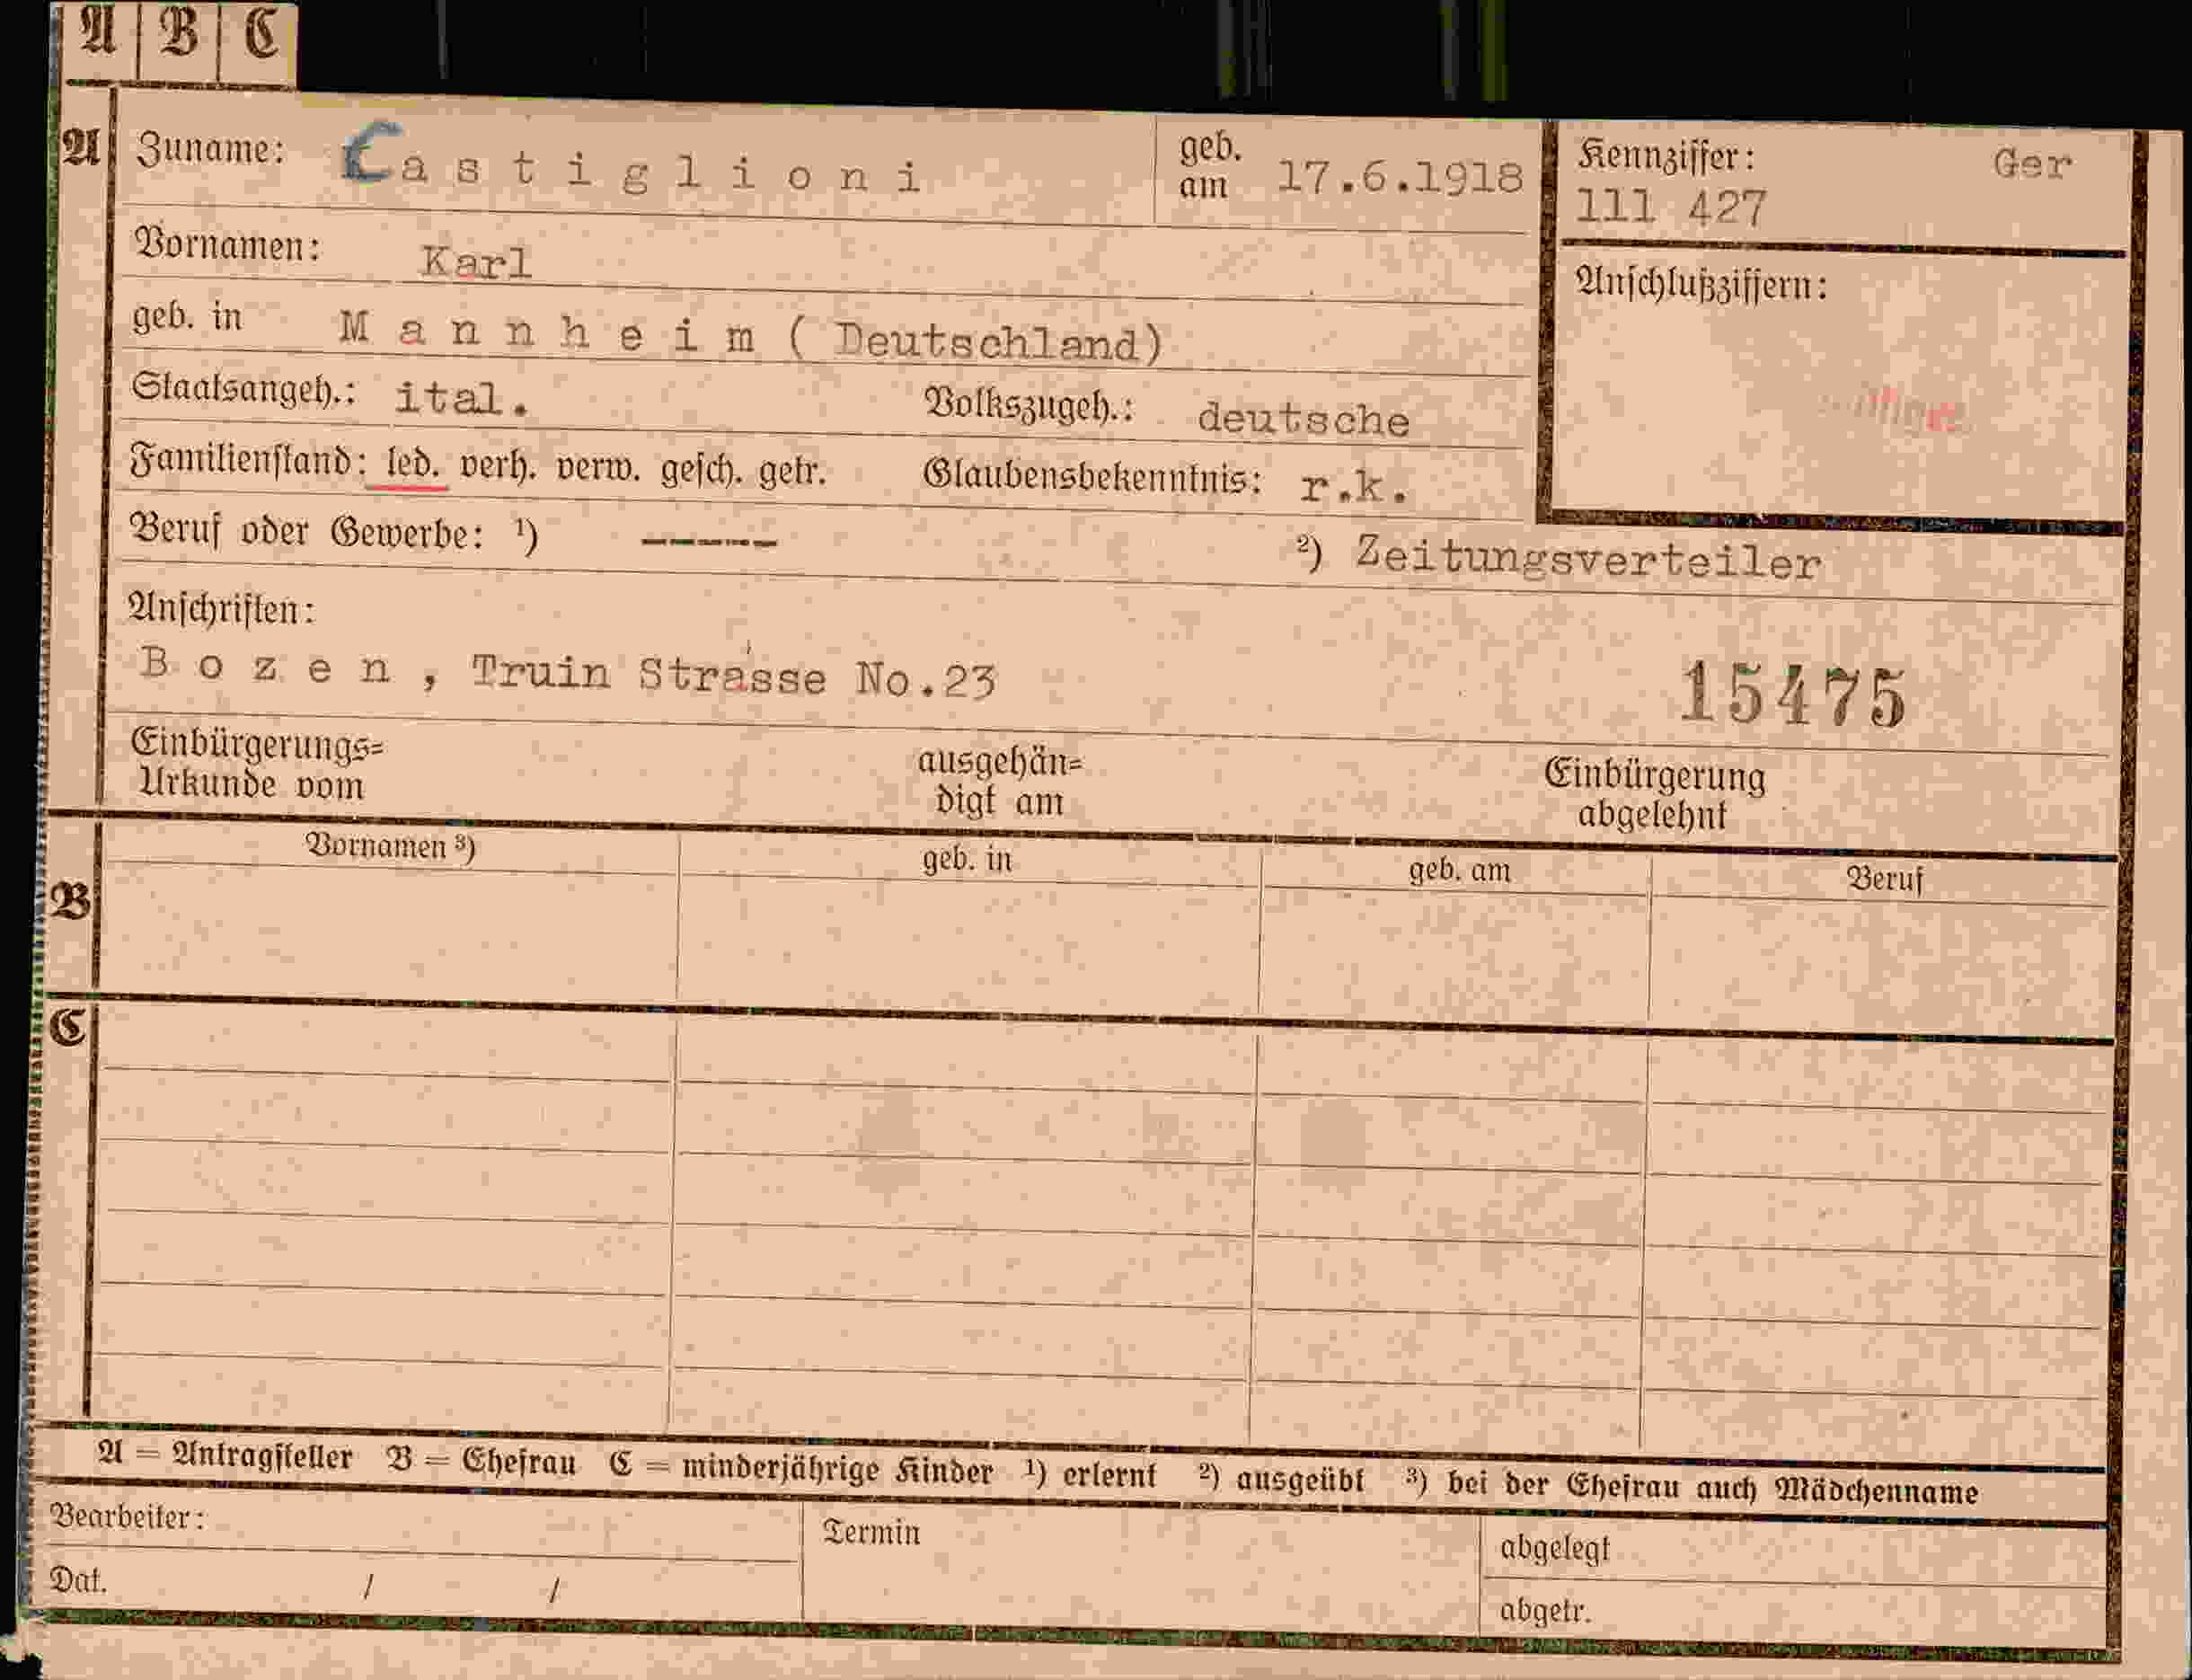 A B C
A Zuname: Castiglioni geb. am 17.6.1918 Kennziffer: Ger
111 427
Vornamen: Karl
Anschlußziffern:
geb. in Mannheim ( Deutschland)
Staatsangeh.: ital. Volkszugeh.: deutsche
Familienstand: led. verh. verw. gesch. getr. Glaubensbekenntnis: r.k.
Beruf oder Gewerbe: ¹) ----- ²) Zeitungsverteiler
Anschriften:
Bozen, Truin Strasse No.23 15475
Einbürgerungs=
Urkunde vom
ausgehän=
digt am
Einbürgerung
abgelehnt
B Vornamen ³) geb. in geb. am Beruf
C
A = Antragsteller B = Ehefrau C = minderjährige Kinder ¹) erlernt ²) ausgeübt ³) bei der Ehefrau auch Mädchenname
Bearbeiter: Termin abgelegt
Dat. / / abgetr.